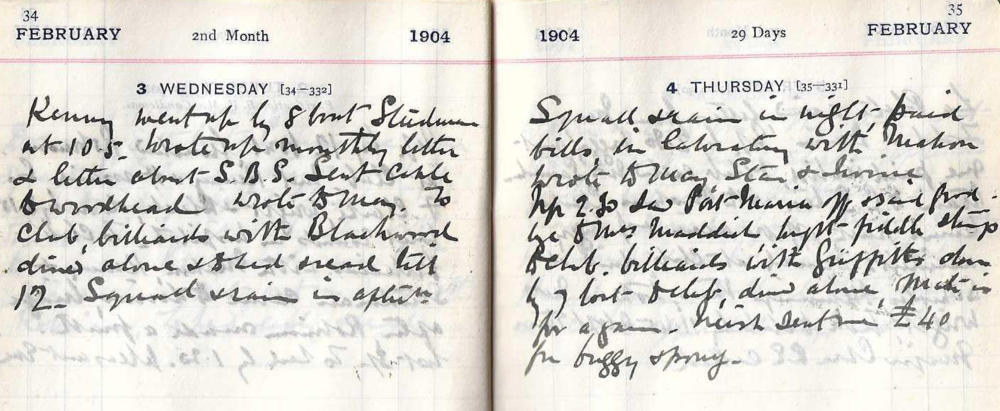 34
FEBRUARY 2nd Month 1904
3 WEDNESDAY [34-332]
Kenny went up by 8 boat
at 10.5. Wrote up monthly letter
& letter about S.B.S. Sent cable
to Woodhead wrote to May. To
Club, billiards with Blackwood
dined alone & to bed read till
12. Squall & rain in aftn.
35
1904 29 Days FEBRUARY
4 THURSDAY [35-331]
Squall & rain in night, paid
bills, in laboratory with Mahon
wrote to May Star & Irvine
Up 2.30 saw Port Maria off, said good-
bye to Mrs Maddick
to club. billiards with Griffiths down
by 7 boat to club, dined alone
for again. sent me £40
for buggy & pony.